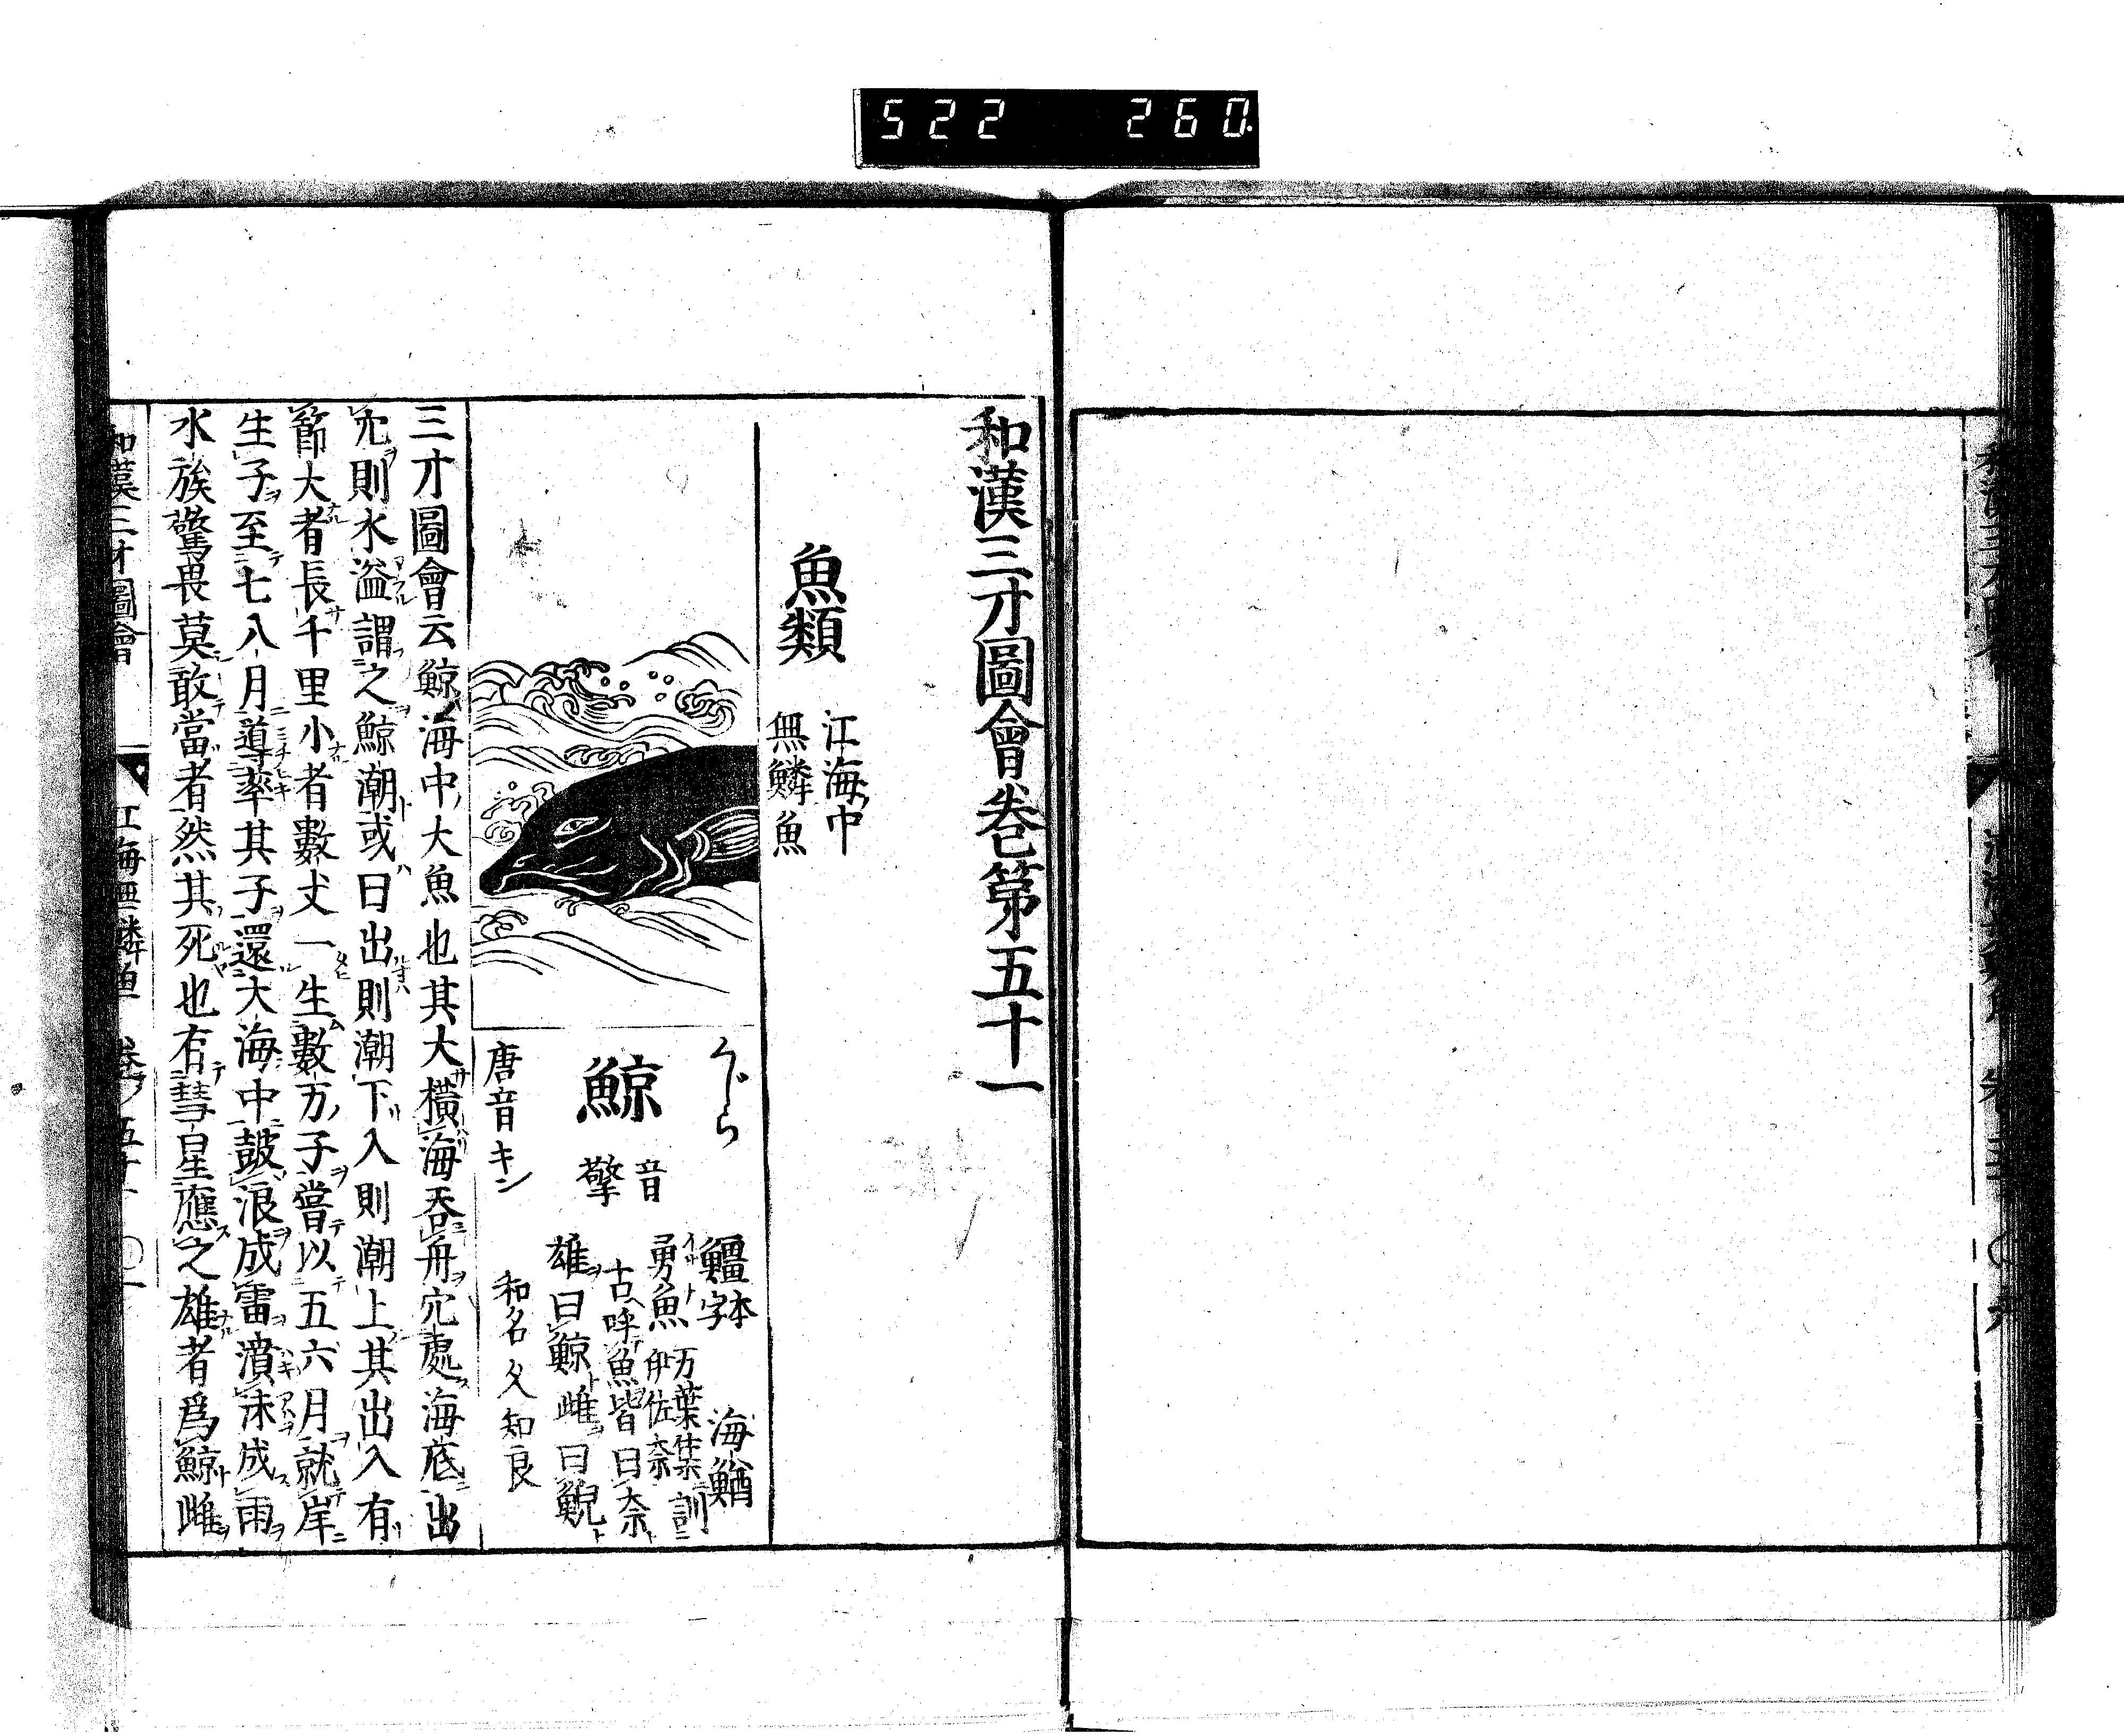 522 260
和漢三才圖會巻第五十一
魚類
江海中
無鱗魚
くじら
鯨
音
擎
唐音キン
鱷字
本
海鰌
勇魚
万葉集訓
伊佐奈
古呼魚皆曰奈
雄曰鯨雌曰鯢
和名久知良
三才圖會云鯨海中大魚也其大橫海吞舟穴處海底出
穴則水溢謂之鯨潮或曰出則潮下入則潮上其出入有
節大者長千里小者數丈一生數万子嘗以五六月就岸
生子至七八月導率其子還大海中鼓浪成雷濆沫成雨
水族驚畏莫敢當者然其死也有彗星應之雄者爲鯨雌
和漢三才圖會
江海無鱗魚
卷ノ五十一
〇一